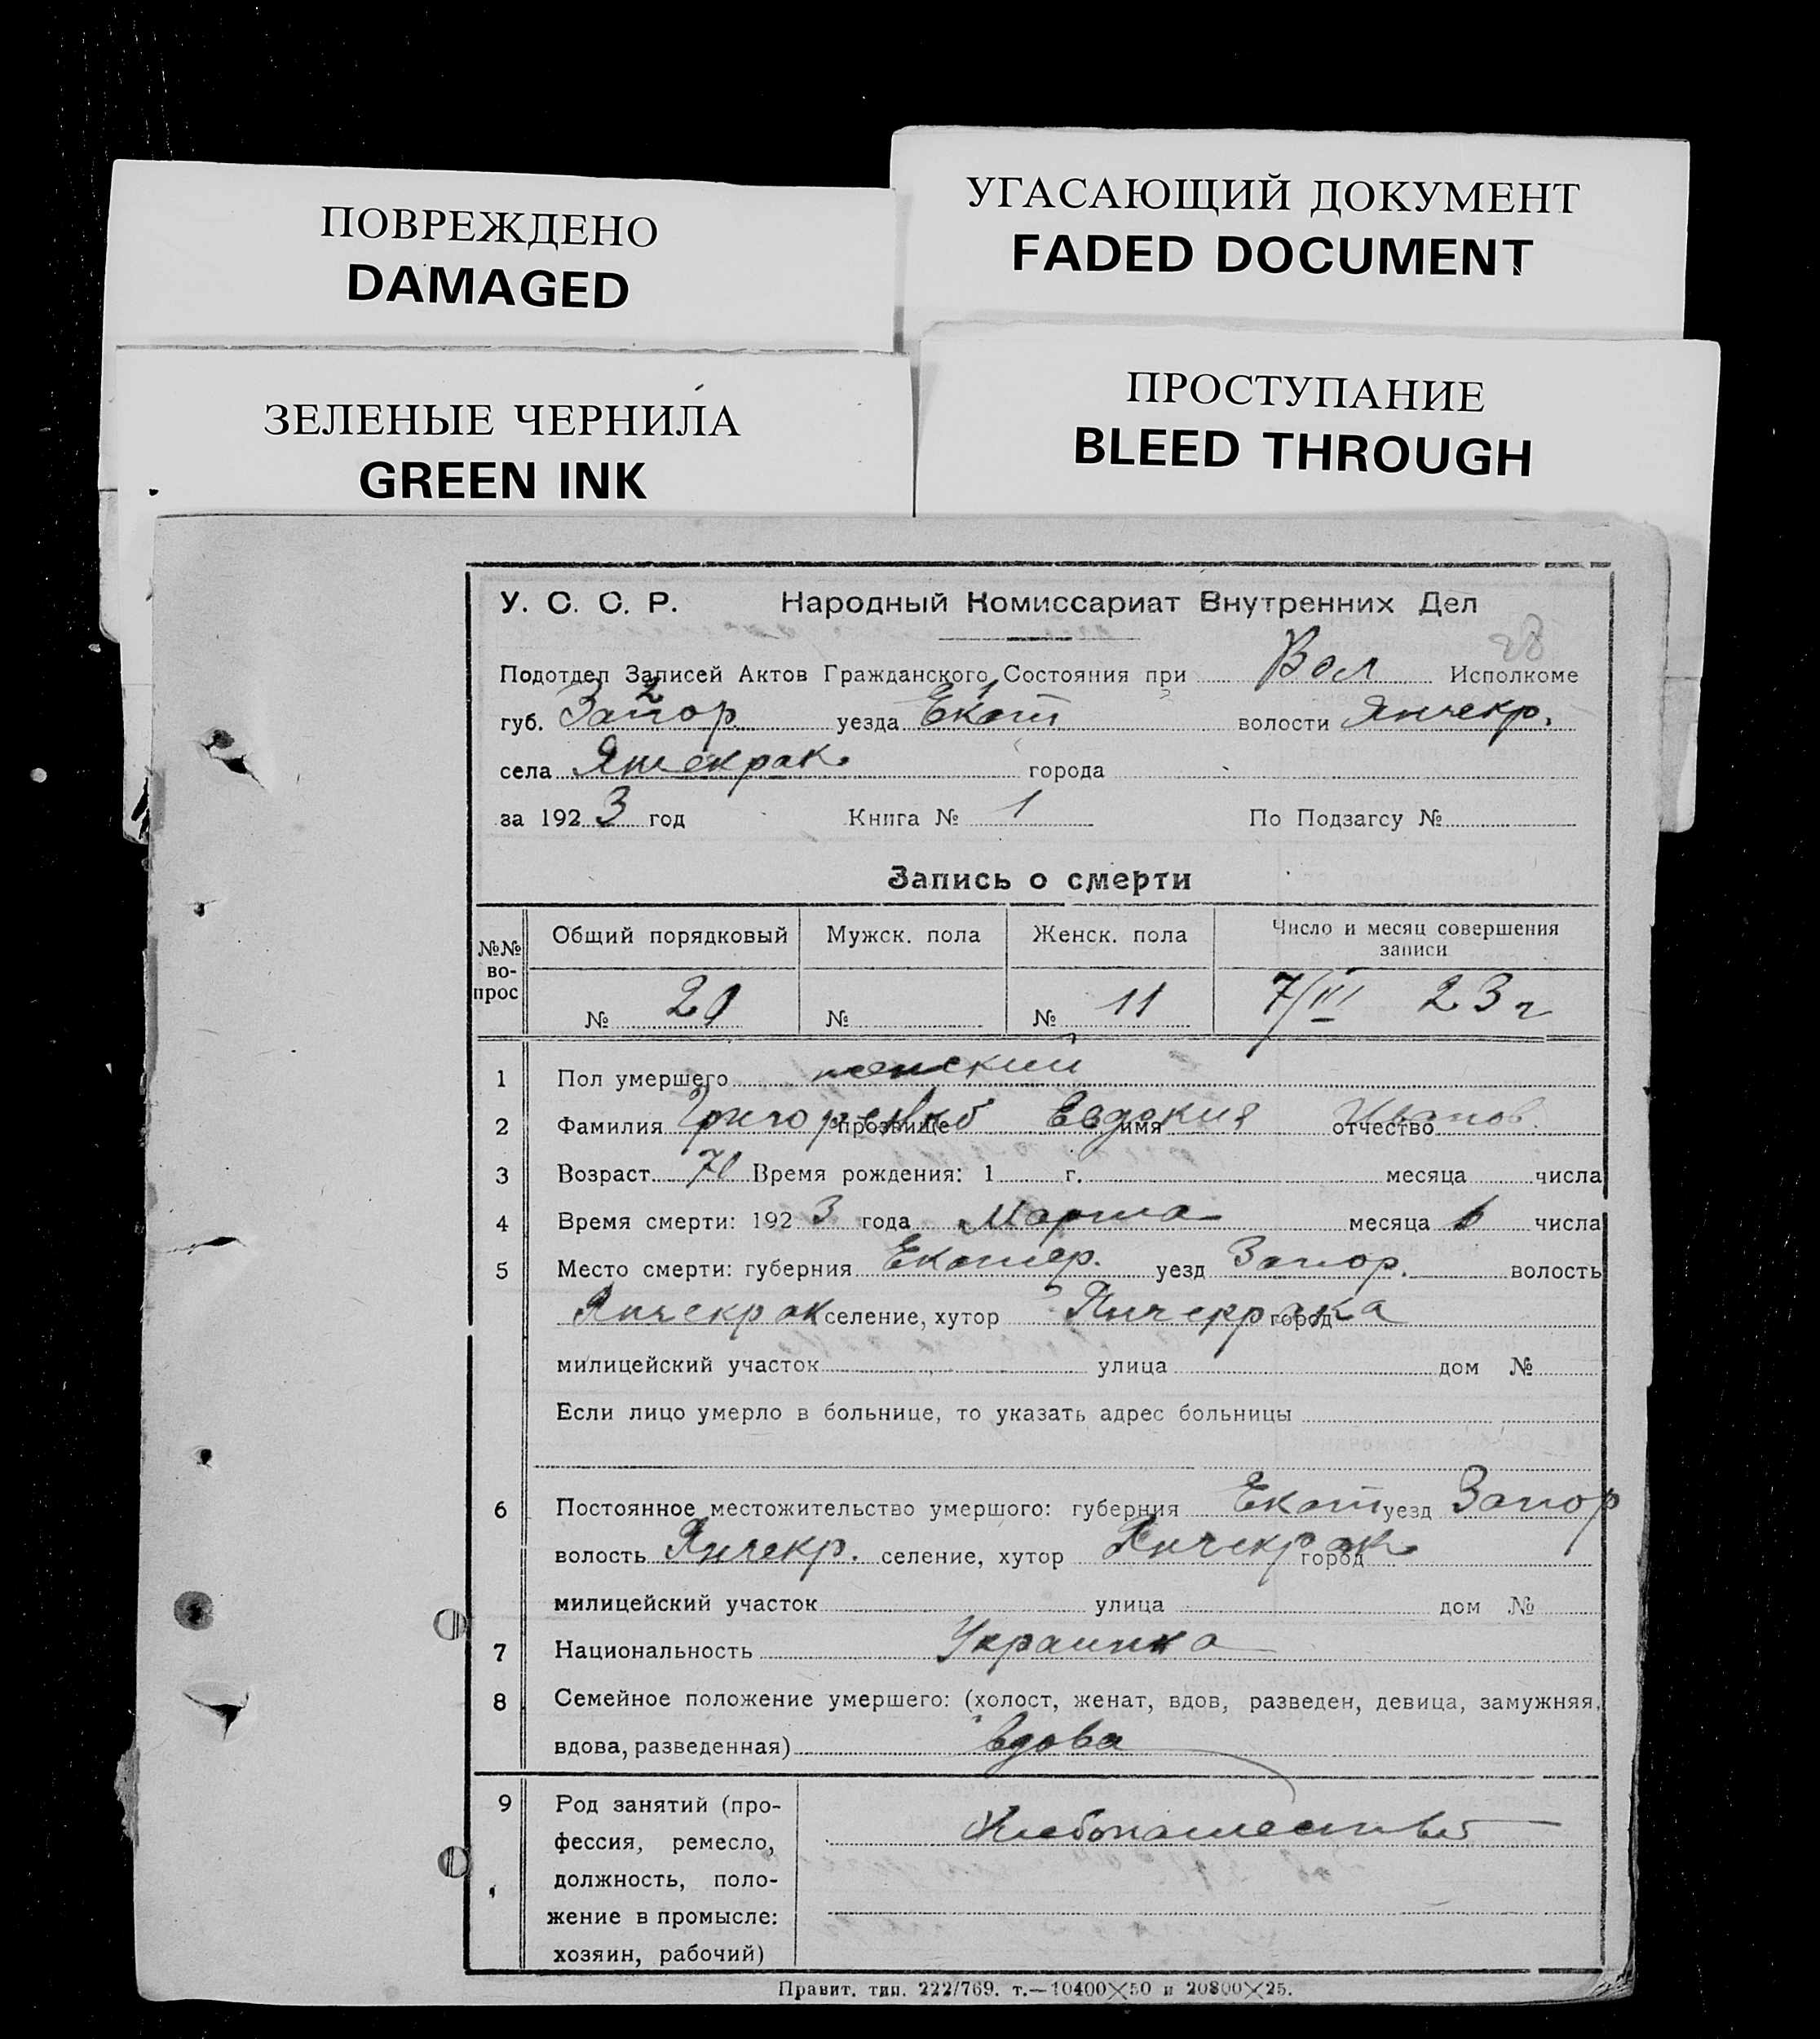 УГАСАЮЩИЙ ДОКУМЕНТ
FADED DOCUMENT
ПОВРЕЖДЕНО
DAMAGED
ПРОСТУПАНИЕ
BLEED THROUGH
ЗЕЛЕНЫЕ ЧЕРНИЛА
GREEN INK
У. С. С. Р. Народный Комиссариат Внутренних Дел
28
Подотдел Записей Актов Гражданского Состояния при Вол Исполкоме
2 1
губ. Запор уезда Екат волости Янчекр.
села Янчекрак города
за 1923 год Книга № 1 По Подзагсу №
Запись о смерти
№№ вопрос Общий порядковый Мужск. пола Женск. пола Число и месяц совершения записи
№ 20 № № 11 7/III 23 г
1 Пол умершего женский
2 Фамилия Григоренко прозвище Евдокия имя отчество Иванов.
3 Возраст 70 Время рождения: 1 г. месяца числа
4 Время смерти: 1923 года Марта месяца 6 числа
5 Место смерти: губерния Екатер. уезд Запор. волость
Янчекрак селение, хутор Янчекрака город
милицейский участок улица дом №
Если лицо умерло в больнице, то указать адрес больницы
6 Постоянное местожительство умершого: губерния Екат уезд Запор
волость Янчекр. селение, хутор Янчекрак город
милицейский участок улица дом №
7 Национальность Украинка
8 Семейное положение умершего: (холост, женат, вдов, разведен, девица, замужняя,
вдова, разведенная) вдова
9 Род занятий (про-
фессия, ремесло, Хлебопашество
должность, поло-
жение в промысле:
хозяин, рабочий)
Правит. тип. 222/769. т.—10400×50 и 20800×25.